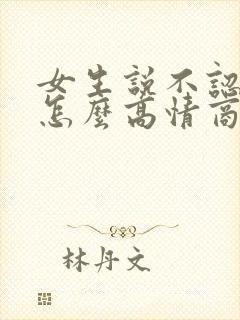 女生說不認
怎麼高情商
林丹文